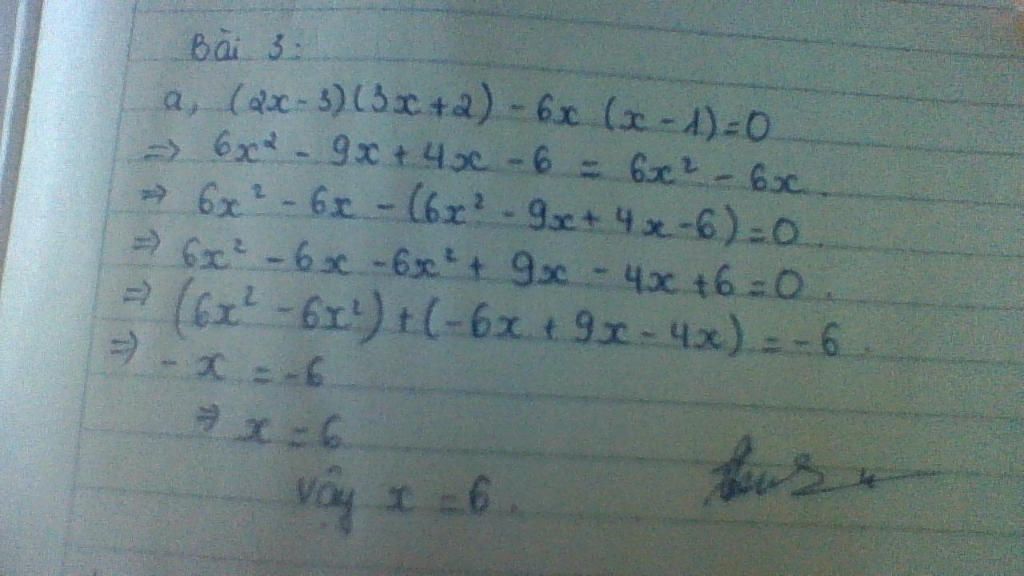 Bài 3:
a, (2x-3)(3x+2) - 6x (x-1)=0
=> 6x² - 9x + 4x - 6 = 6x² - 6x.
=> 6x² - 6x - (6x² - 9x + 4x - 6) = 0.
=> 6x² - 6x - 6x² + 9x - 4x + 6 = 0.
=> (6x² - 6x²) + (-6x + 9x - 4x) = -6.
=> - x = -6
=> x = 6
Vậy x = 6.